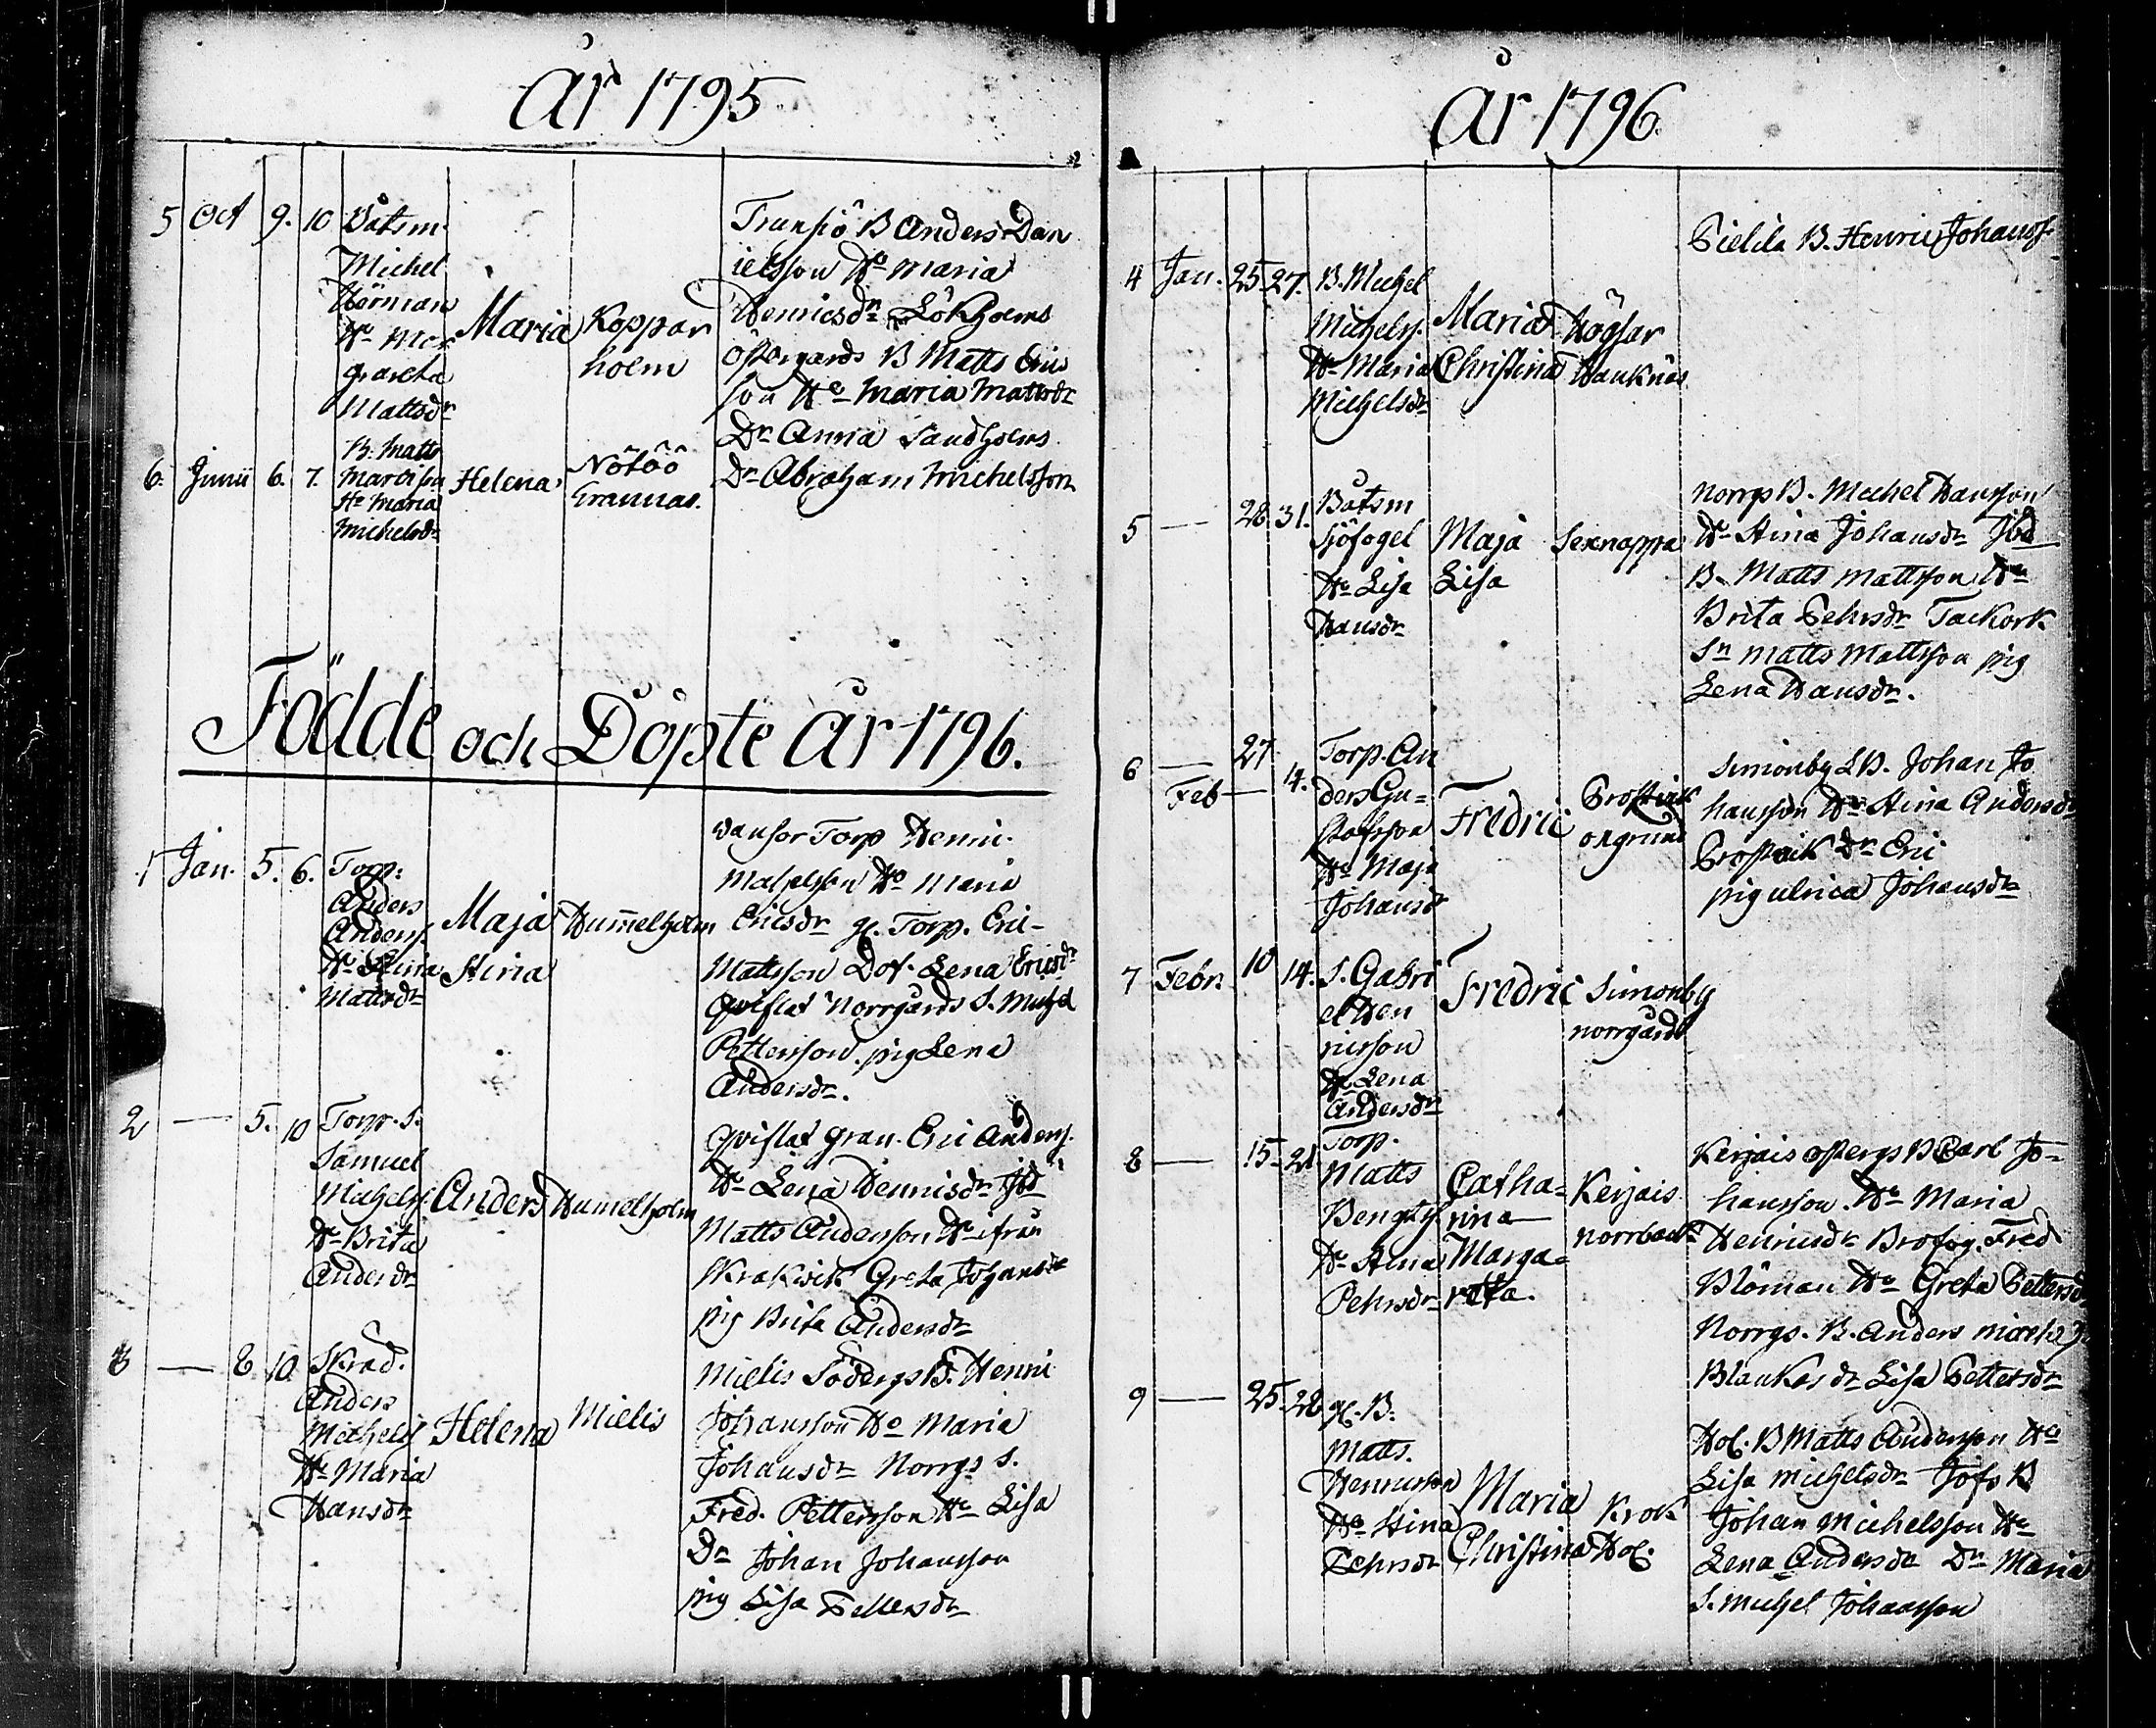 År 1795
5 Oct 9. 10 Båtsm.
Michel
Hörman
Hu Mar
gareta
Mattsdr
Maria
Koppar
holm
Trunsö B Anders Dan
ielsson Hu Maria
Henricsdr Lökholms
Östergårds B Matts Erics
son Hu Maria Mattsdr
Dr Anna Sandholms
Dr Abraham Michelsson
6. Junii 6. 7.
B. Matts
Hu Maria
Michelsdr
Helena
Nötöö
Födde och Döpte År 1796.
1 Jan. 5. 6. Torp:
Anders
Anders.
Hu Stina
Mattsdr
Maja
Stina
Hummelholm
Torp Henric
Hu Maria
Ericsdr gl. Torp. Eric
Mattsson Dot. Lena Ericsdr
Qvislax Norrgårds S. Michel
Pettersson pig Lena
Andersdr.
2 — 5. 10 Torp. S.
Samuel
Michels.
Hu Brita
Andersdr
Anders
Hummelholm
Qvislax Eric Anders.
Hu Lena Henricsdr Ibd
Matts Andersson Hu ifrån
Skrakvik Greta Johansdr
pig Brita Andersdr
3 — 8 10. Skräd.
Anders
Michels
Hu Maria
Hansdr
Helena
Mielis
Mielis Södergs B. Henric
Johansson Hu Maria
Johansdr Norrgs S.
Fred. Pettersson Hu Lisa
Dr Johan Johansson
pig Lisa Pettersdr
År 1796.
Pielila B. Henric Johanss.
4 Jan. 25. 27. B. Michel
Michels.
Hu Maria
Michelsdr
Maria
Christina
Högsar
Hauknäs
5 — 28. 31. Båtsm
Sjöfogel
Hu Lisa
Hansdr
Maja
Lisa
Sexnappa
Norrgs B. Michel Hansson
Hu Stina Johansdr Ibd
B. Matts Mattsson Hu
Brita Pehrsdr Tackork
Sn Matts Mattsson pig
Lena Hansdr.
6 — 27
Feb — 14.
Torp. An
ders Gu=
stafsson
Hu Maja
Johansdr
Fredric
Prostvik
Simonby B. Johan Jo
hansson Hu Stina Andersdr
Prostvik Dr Eric
pig Ulrica Johansdr
7 Febr. 10 14. S. Gabri
el Hen
ricsson
Hu Lena
Andersdr
Fredric
Simonby
norrgård
8 — 15. 21 Torp.
Matts
Bengts
Hu Stina
Pehrsdr
Catha=
rina
Marga=
reta.
Kerjais
norrback
Kerjais östergs B Carl Jo=
hansson. Hu Maria
Henricsdr Brofog. Fred
Blöman Hu Greta Pettersdr
Norrgs. B. Anders
Dr Lisa Pettersdr
9 — 25. 28 gl. B.
Matts.
Henricsson
Hu Stina
Pehrsdr
Maria
Christina
Krok
Hol.
Hol. B Matts Andersson Hu
Lisa Michelsdr Tofs B
Johan Michelsson Hu
Lena Andersdr Dr Maria
S. Michel Johansson